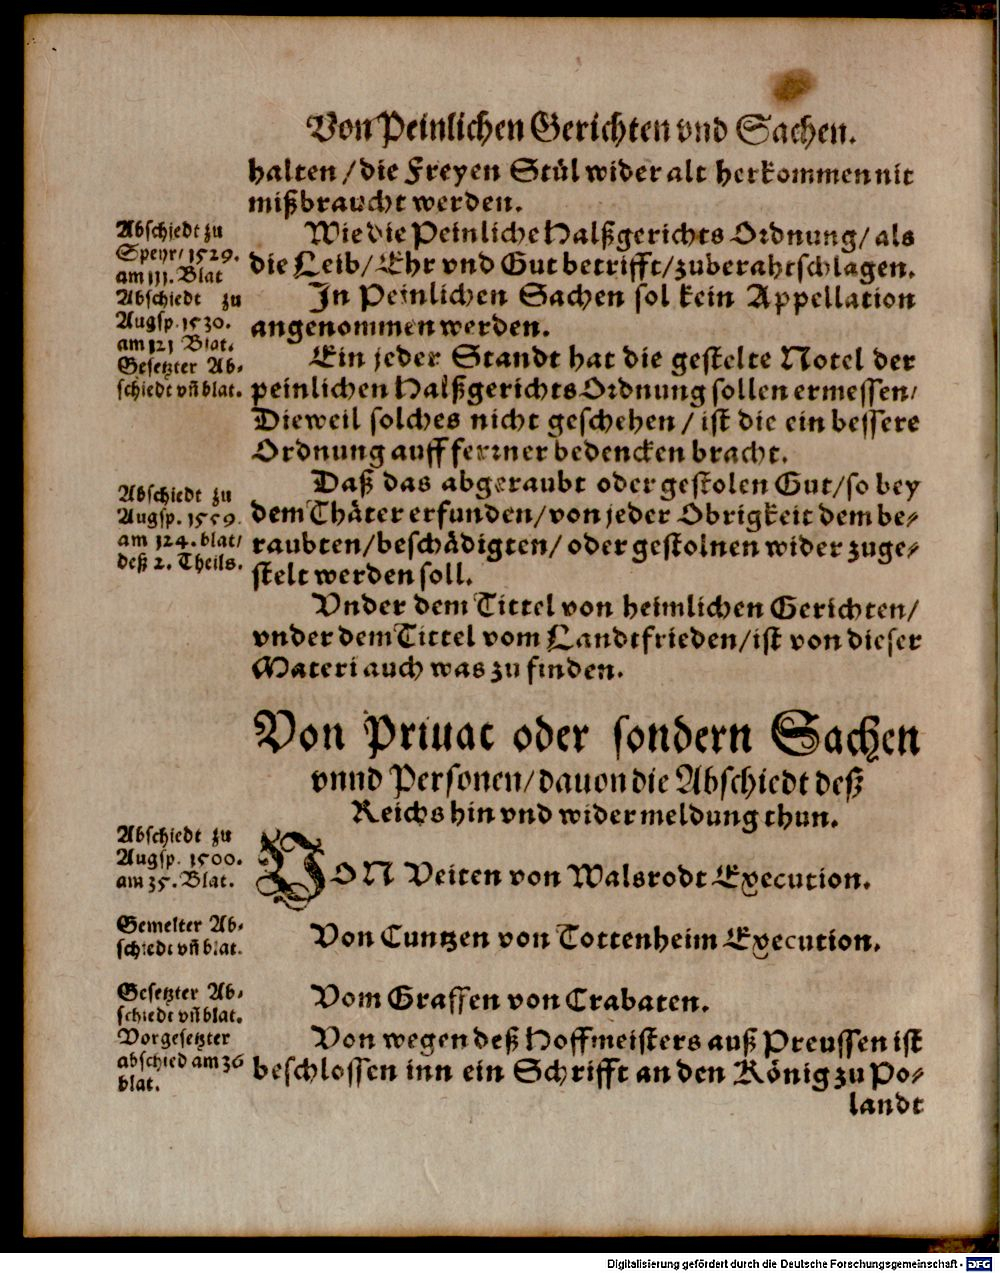 Von Peinlichen Gerichten vnd Sachen.
halten / die Freyen Stůl wider alt herkommen nit
mißbraucht werden.
Abschiedt zu
Speyr / 1529.
am 111. Blat
Wie die Peinliche Halßgerichts Ordnung / als
die Leib / Ehr vnd Gut betrifft / zuberahtschlagen.
Abschiedt zu
Augsp. 1530.
am 121 Blat.
In Peinlichen Sachen sol kein Appellation
angenommen werden.
Gesetzter Ab-
schiedt vñ blat.
Ein jeder Standt hat die gestelte Notel der
peinlichen Halßgerichts Ordnung sollen ermessen /
Dieweil solches nicht geschehen / ist die ein bessere
Ordnung auff ferrner bedencken bracht.
Abschiedt zu
Augsp. 1559.
am 124. blat /
deß 2. Theils.
Daß das abgeraubt oder gestolen Gut / so bey
dem Thäter erfunden / von jeder Obrigkeit dem be-
raubten / beschädigten / oder gestolnen wider zuge-
stelt werden soll.
Vnder dem Tittel von heimlichen Gerichten /
vnder dem Tittel vom Landtfrieden / ist von dieser
Materi auch was zu finden.
Von Priuat oder sondern Sachen
vnnd Personen / dauon die Abschiedt deß
Reichs hin vnd wider meldung thun.
Abschiedt zu
Augsp. 1500.
am 35. Blat.
VON Veiten von Walsrodt Execution.
Gemelter Ab-
schiedt vñ blat.
Von Cuntzen von Tottenheim Execution.
Gesetzter Ab-
schiedt vñ blat.
Vom Graffen von Crabaten.
Vorgesetzter
abschied am 36
blat.
Von wegen deß Hoffmeisters auß Preussen ist
beschlossen inn ein Schrifft an den König zu Po-
landt
Digitalisierung gefördert durch die Deutsche Forschungsgemeinschaft - DFG